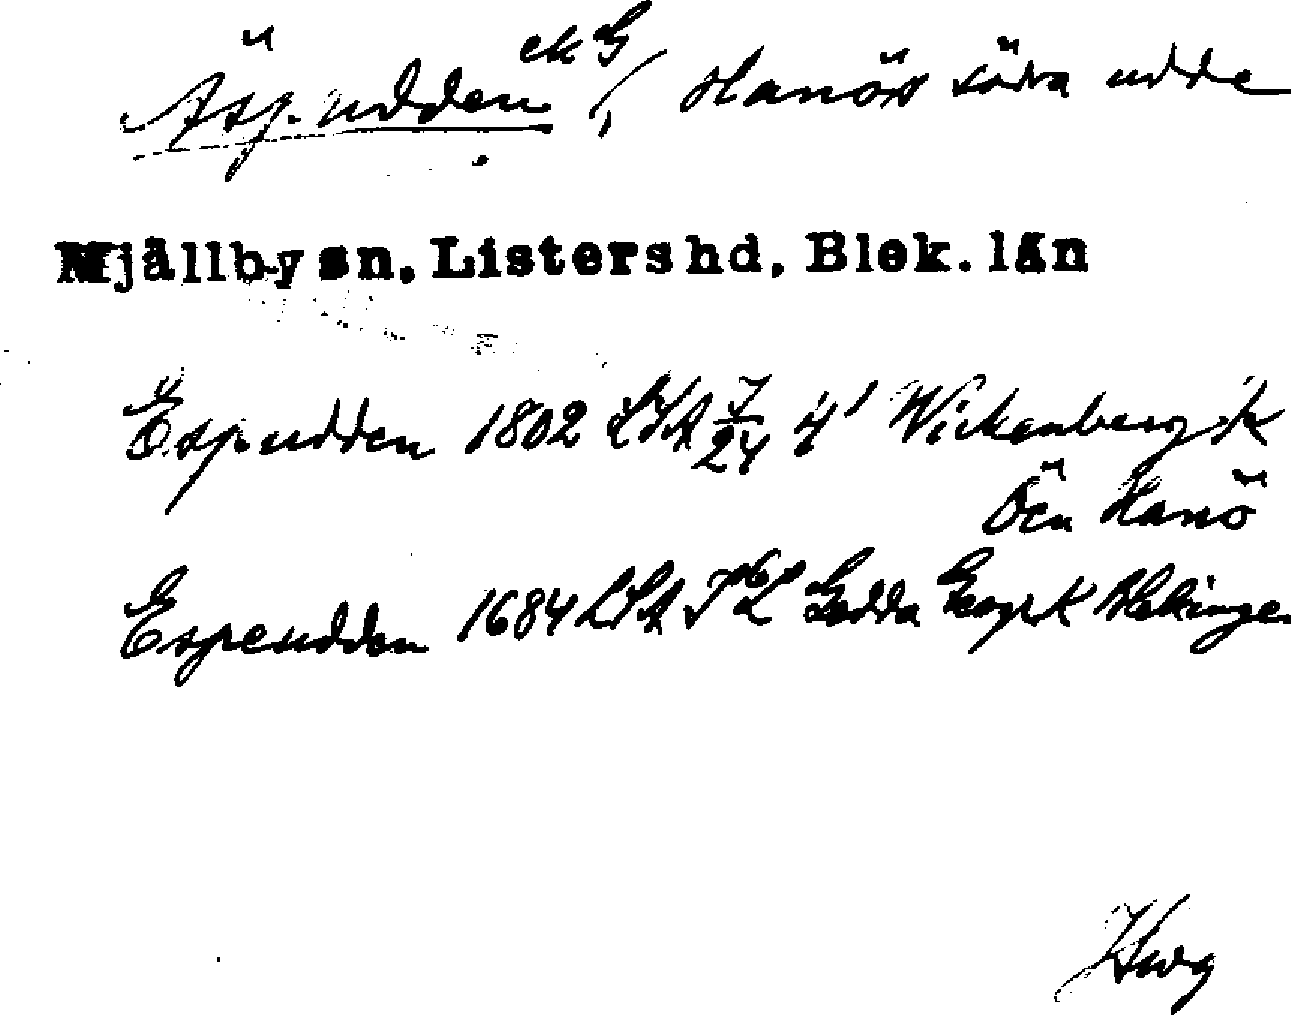 Äsp.udden ek G Hanös södra udde
Mjällby sn, Listers hd, Blek. län
Espudden 1802 LSA 7/24 4' Wickenberg sk
Ön Hanö
Espeudden 1684 LSA Gedda Geogr K Blekinge